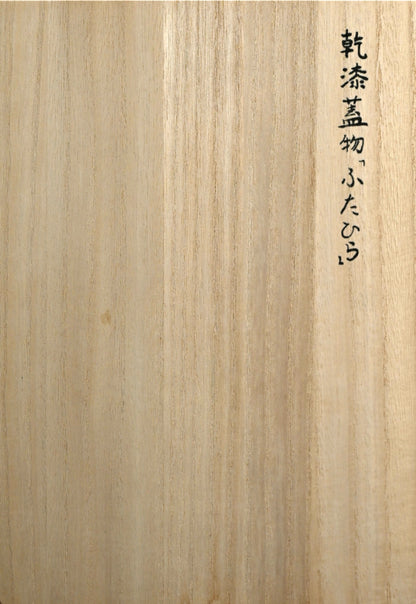 乾漆蓋物「ふたひら」